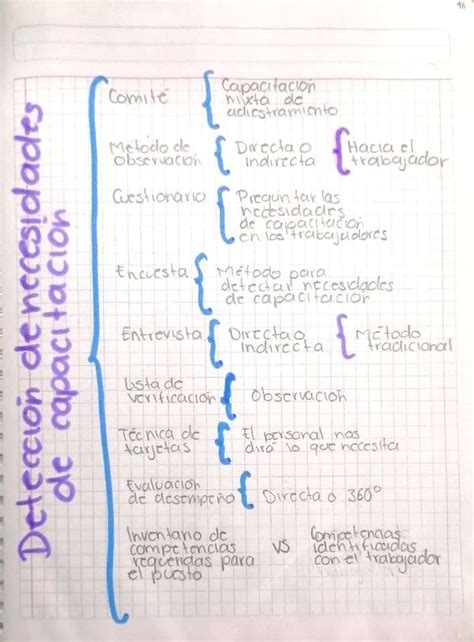 96
Detección de necesidades
de capacitación
Comité
Capacitación
mixta de
adiestramiento
Método de
observación
Directa o
indirecta
Hacia el
trabajador
Cuestionario
Preguntar las
necesidades
de capacitación
en los trabajadores
Encuesta
Método para
detectar necesidades
de capacitación
Entrevista
Directa o
indirecta
Método
tradicional
Lista de
verificación
Observación
Técnica de
tarjetas
El personal nos
dirá lo que necesita
Evaluación
de desempeño
Directa o 360°
Inventario de
competencias
requeridas para
el puesto
VS
Competencias
identificadas
con el trabajador